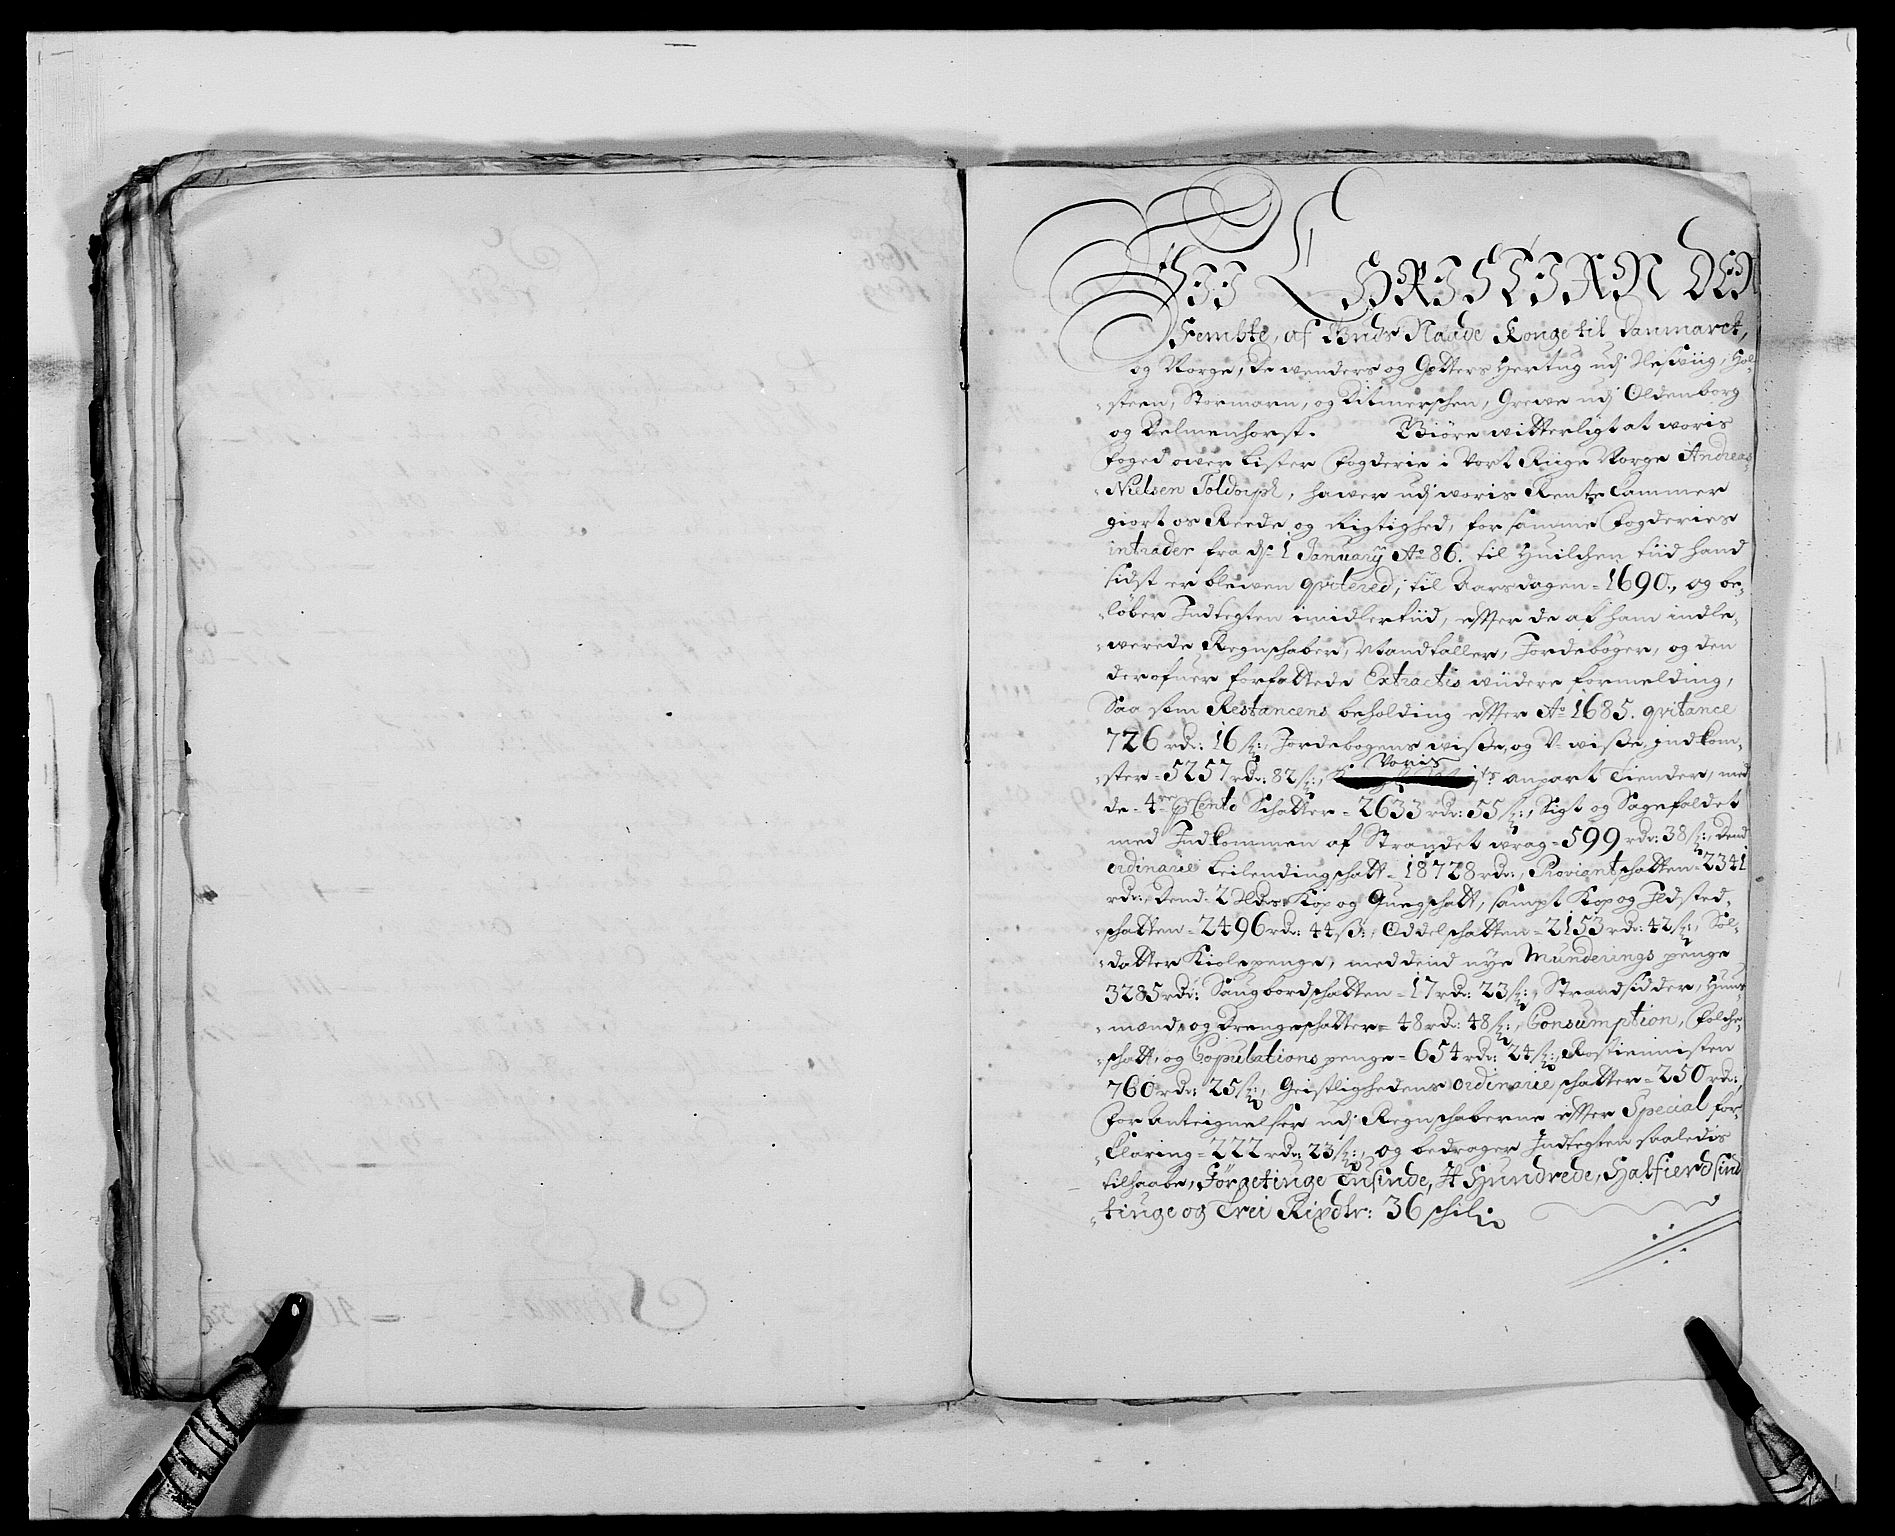 WII CHRISTIAN DEN
Fembte, af Guds Naade Konge til Danmarck,
og Norge, De wenders og Gotters Hertug udj Slesviig, Hol-
steen, Stormarn, og Ditmerschen, Grewe udj Oldenborg
og Delmenhorst. Giøre witterligt at woris
foged ower Lister fogderie i Vort Riige Norge Andreas
Nielsen Toldorph, hawer udj woris Rente Cammer
giort os Reede og Rigtighed, for samme fogderies
intrader fra d: 1 Januarij Ao 86. til Huilchen tiid hand
sidst er blewen qvitered, til Aarsdagen 1690., og be-
løber Indtegten imidlertiid, effter de af ham indle-
werede Regnschaber, Mandtaller, Jordebøger, og den
derofuer forfattede Extractis wiidere formelding,
Saa som Restancens beholding effter Ao 1685. qvitance
726 rdr: 16 ß:, Jordebogens wiße, og U-wiße indkom-
ster 5257 rdr: 82 ß:, Voris anpart Tiender, med
de 4re p Cento Schatter 2633 rdr: 55 ß:, Sigt og Sagefaldet
med Indkommen af Strandet wrag 599 rdr: 38 ß:, Dend
ordinarie Leilendingschatt 18728 rdr:, Proviantschatten 2341
rdr:, Dend 2 Kop og Quegschatt, sampt Kop og Ildsted-
schatten 2496 rdr: 44 ß:, Oddelschatten 2153 rdr: 42 ß:, Sol-
datter Kiolepenge, med dend nye Munderings penge
3285 rdr: Saugbordschatten 17 rdr: 23 ß:, Strandsidder, Huus-
mænd, og Drengeschatter 48 rdr: 48 ß:, Consumption, Folche-
schatt, og Copulations penge 654 rdr: 24 ß:, Rostiennisten
760 rdr: 25 ß:, Geistlighedens ordinarie schatter 250 rdr:,
for anteignelser udj Regnschaberne effter Special for-
klaring 222 rdr: 23 ß:, og bedrager Indtegten saaledis
tilhaabe, Førgetiuge Tusinde, It Hundrede, Halfierdsind
tiuge og Trei Rixdlr: 36 schil: